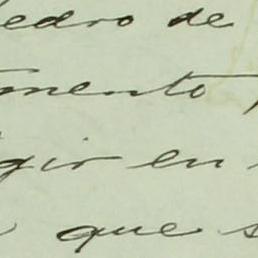 edro de
mento
gir en
que s